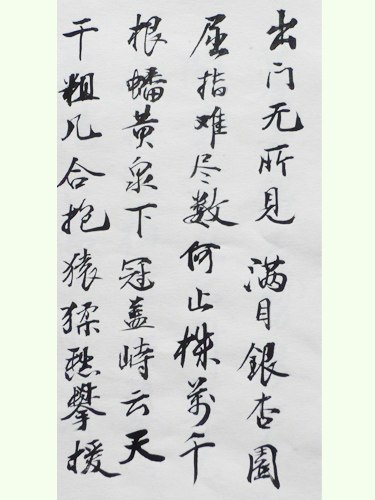 出门无所見 满目銀杏園
屈指难尽数 何止株萬千
根蟠黄泉下 冠盖峙云天
干粗几合抱 猿猱愁攀援